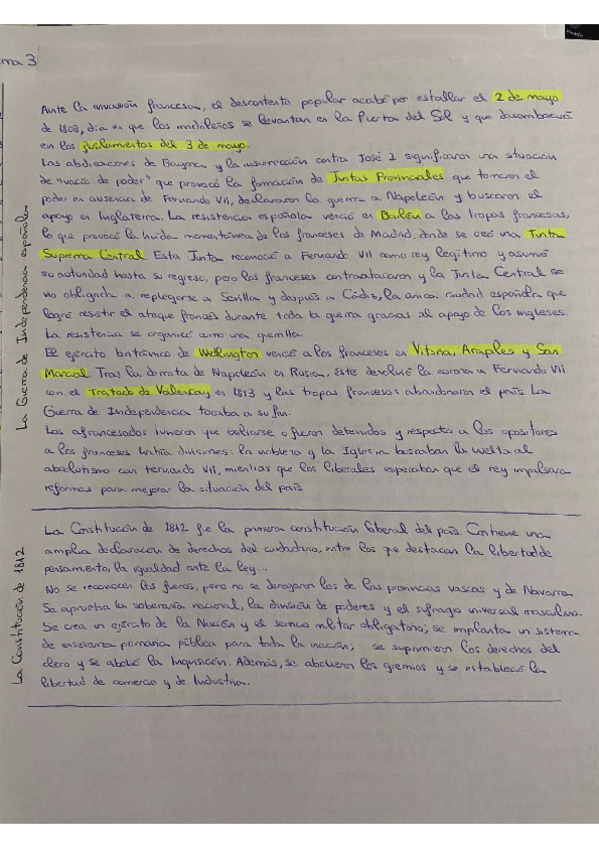 ma 3
La Guerra de Independencia española
Ante la invasión francesa, el descontento popular acabó por estallar el 2 de mayo
de 1808, día en que los madrileños se levantan en la Puerta del Sol y que desembocará
en los fusilamientos del 3 de mayo.
Las abdicaciones de Bayona y la insurrección contra José I significaron una situación
de "vacío de poder" que provocó la formación de Juntas Provinciales que tomaron el
poder en ausencia de Fernando VII, declararon la guerra a Napoleón y buscaron el
apoyo en Inglaterra. La resistencia española venció en Bailén a las tropas francesas,
lo que provocó la huida momentánea de los franceses de Madrid, donde se creó una Junta
Suprema Central. Esta Junta reconoció a Fernando VII como rey legítimo y asumió
su autoridad hasta su regreso, pero los franceses contraatacaron y la Junta Central se
vio obligada a replegarse a Sevilla y después a Cádiz, la única ciudad española que
logró resistir el ataque francés durante toda la guerra gracias al apoyo de los ingleses.
La resistencia se organizó como una guerrilla.
El ejército británico de Wellington venció a los franceses en Vitoria, Arapiles y San
Marcial. Tras la derrota de Napoleón en Rusia, éste devolvió la corona a Fernando VII
con el Tratado de Valençay en 1813 y las tropas francesas abandonaron el país. La
Guerra de Independencia tocaba a su fin.
Los afrancesados tuvieron que exiliarse o fueron detenidos y respecto a los opositores
a los franceses había divisiones: la nobleza y la Iglesia buscaban la vuelta al
absolutismo con Fernando VII, mientras que los liberales esperaban que el rey impulsara
reformas para mejorar la situación del país.
La Constitución de 1812
La Constitución de 1812 fue la primera constitución liberal del país. Contiene una
amplia declaración de derechos del ciudadano, entre los que destacan la libertad de
pensamiento, la igualdad ante la ley...
No se reconocen los fueros, pero no se derogaron los de las provincias vascas y de Navarra.
Se aprueba la soberanía nacional, la división de poderes y el sufragio universal masculino.
Se crea un ejército de la Nación y el servicio militar obligatorio; se implanta un sistema
de enseñanza primaria pública para toda la nación; se suprimieron los derechos del
clero y se abolió la Inquisición. Además, se abolieron los gremios y se estableció la
libertad de comercio y de Industria.